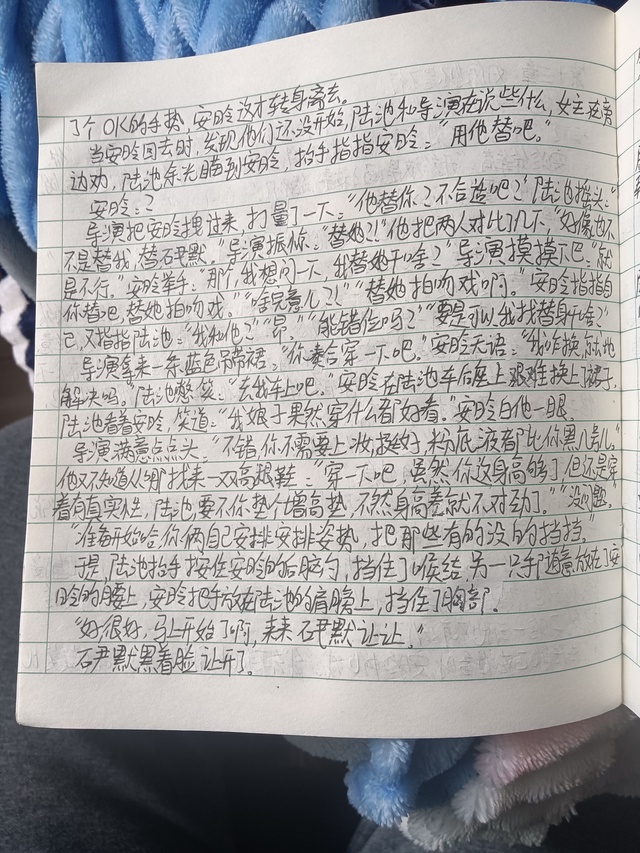 了个OK的手势，安昤这才转身离去。
当安昤回去时，发现他们还没开始，陆池和导演在说些什么，女主在旁
边劝，陆池余光瞄到安昤，抬手指指安昤：“用他替吧。”
安昤：？
导演把安昤拽过来，打量了一下：“他替你？不合适吧？”陆池摇头：“
不是替我，替石尹默。”导演振惊：“替她？！”他把两人对比了几下，“好像也不
是不行。”安昤举手：“那个，我想问一下，我替她干啥？”导演摸摸下巴。“就
你替吧，替她拍吻戏。”“啥玩意儿？！”“替她拍吻戏啊。”安昤指指自
己，又指指陆池：“我和他？”“昂。”“能错位吗？”“要是可以，我找替身干啥？”
导演拿来一条蓝色吊带裙：“你凑合穿一下吧。”安昤无语：“我咋换，就地
解决吗。”陆池憋笑：“去我车上吧。”安昤在陆池车后座上艰难换上了裙子，
陆池看着安昤，笑道：“我娘子果然穿什么都好看。”安昤白他一眼。
导演满意点点头：“不错，你不需要上妆，挺好，粉底液都比你黑几号儿。”
他又不知道从哪找来一双高跟鞋：“穿一下吧，虽然你这身高够了，但还是穿
着有真实性，陆池，要不你垫个增高垫，不然身高差就不对劲了。”“没问题。”
“准备开始哈，你俩自己安排安排姿势，把那些有的没的挡挡。”
于是，陆池抬手按住安昤的后脑勺，挡住了喉结，另一只手随意放在了安
昤的腰上，安昤把手放在陆池的肩膀上，挡住了胸部。
“好很好，马上开始了啊，来来石尹默让让。”
石尹默黑着脸让开了。